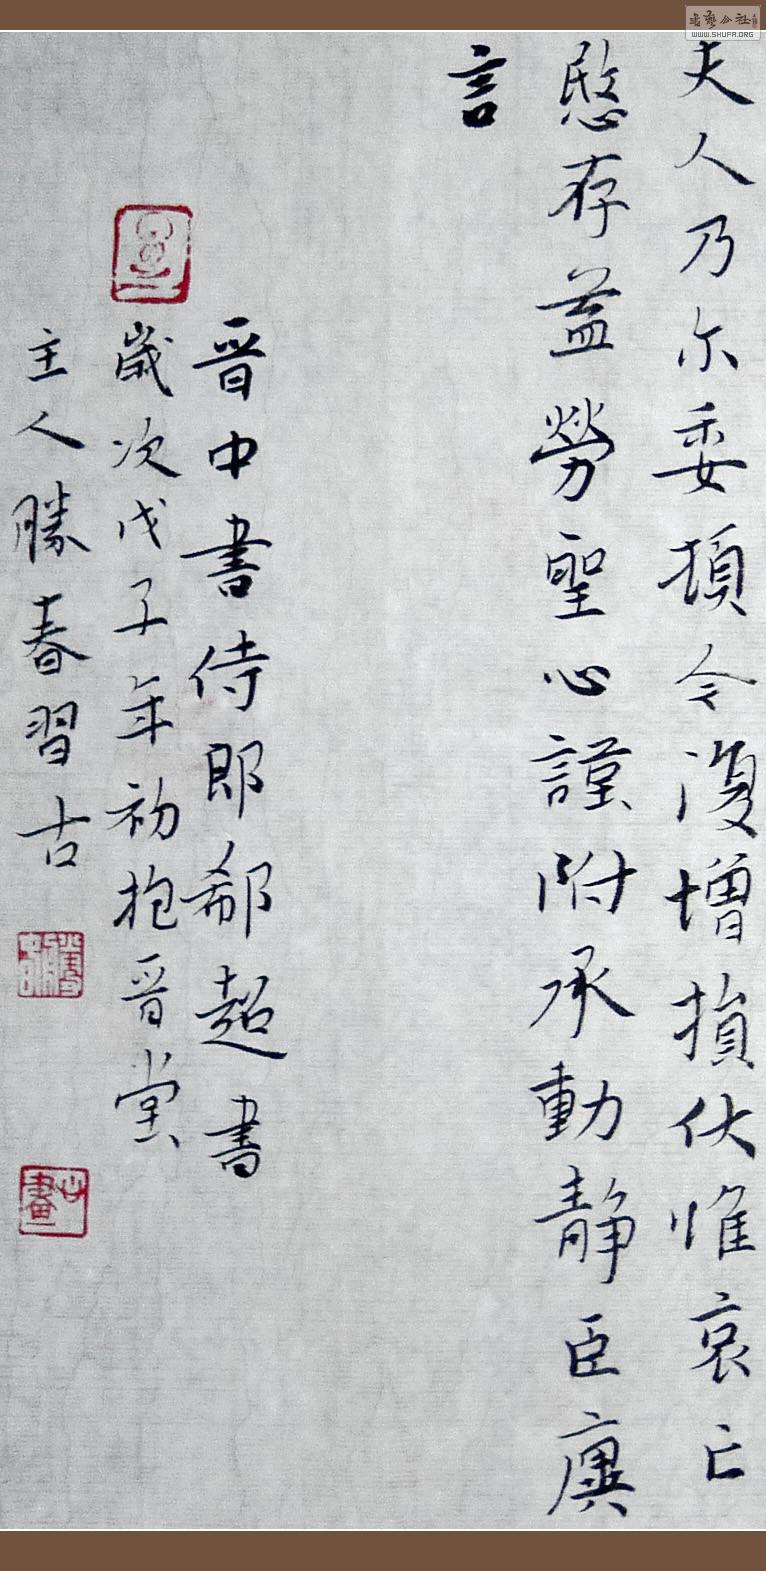 夫人乃尔委頓令復增損伏惟哀亡
愍存益勞聖心謹附承動静臣廙
言
晉中書侍郎郗超書
歲次戊子年初抱晉堂
主人勝春習古
WWW.SHUFA.ORG